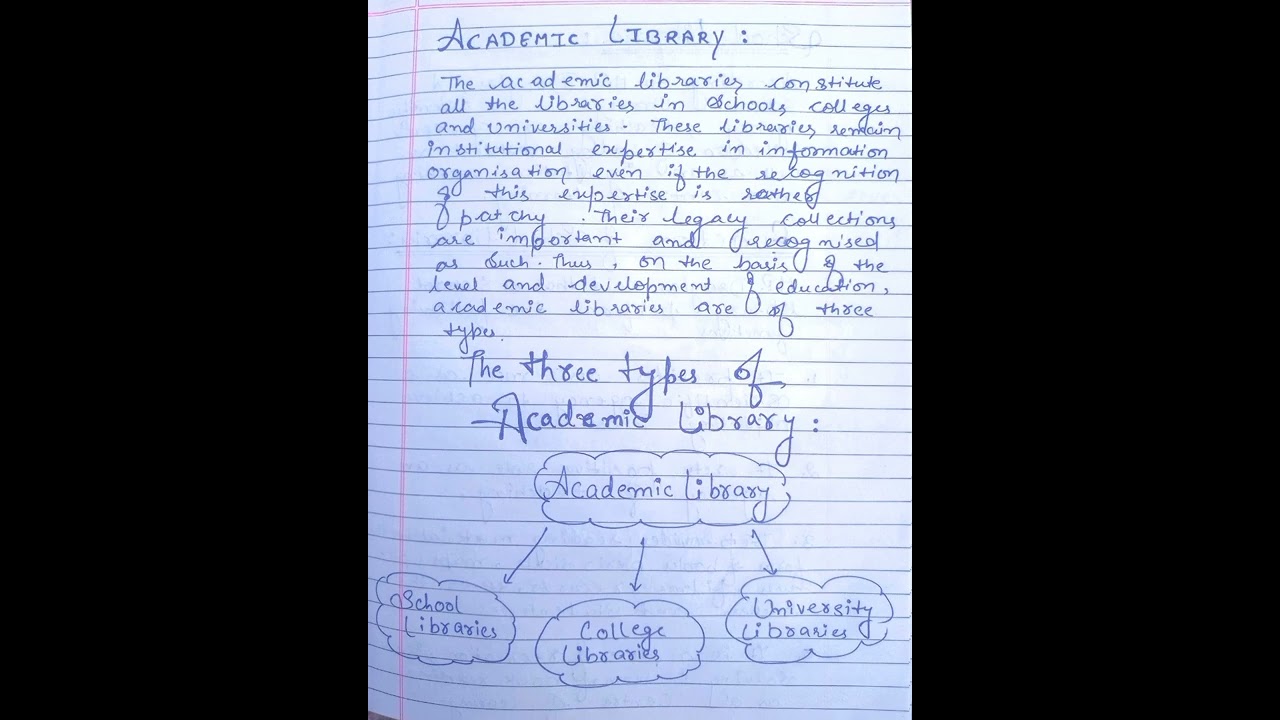 ACADEMIC LIBRARY :
The academic libraries constitute
all the libraries in Schools, colleges
and Universities. These libraries remain
institutional expertise in information
organisation even if the recognition
of this expertise is rather
patchy. Their legacy collections
are important and recognised
as such. Thus, on the basis of the
level and development of education,
academic libraries are of three
types.
The three types of
Academic Library :
Academic Library
School
Libraries
College
Libraries
University
Libraries